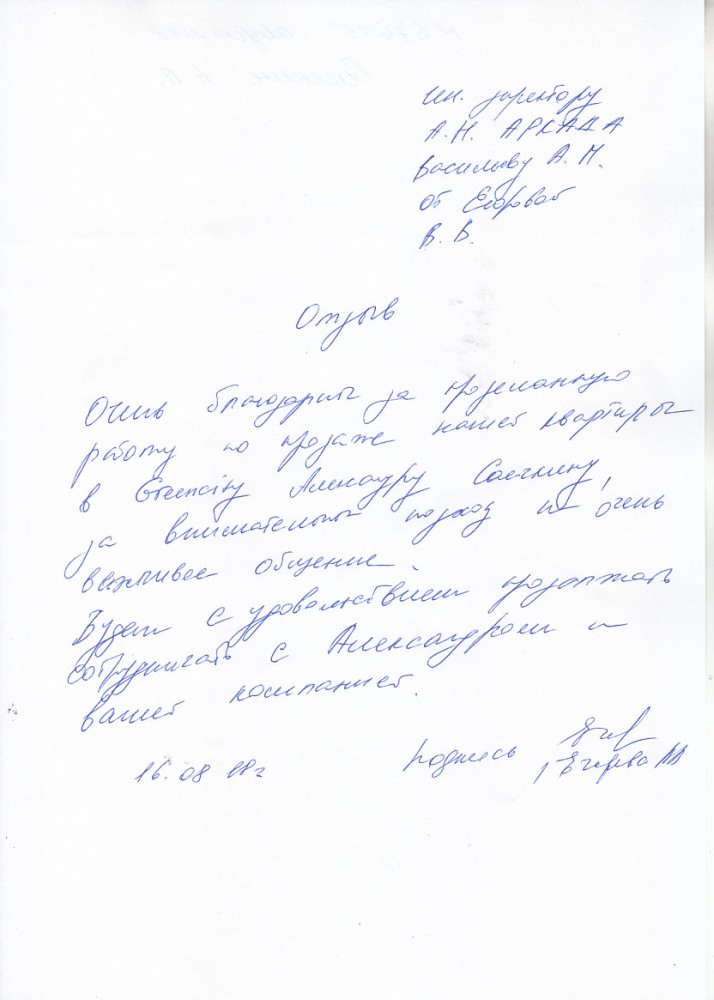 ген. директору
А.Н. АРКАДА
Васильеву А.Н.
от Егоровой
В.В.
Отзыв
Очень благодарны за проделанную
работу по продаже нашей квартиры
в Александру Савкину,
за внимательный подход и очень
вежливое общение.
Будем с удовольствием продолжать
сотрудничать с Александром и
вашей компанией.
16.08 18г подпись Егорова